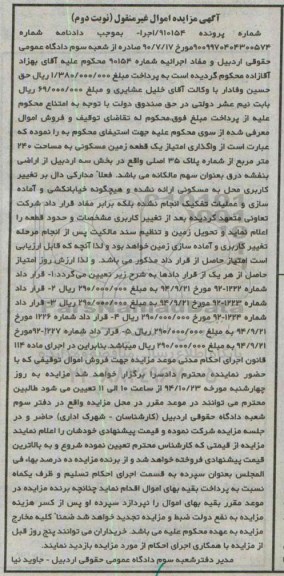 آگهی مزایده اموال غیرمنقول (نوبت دوم)
شماره پرونده ۹۱۰۱۵۴/اجرا- بموجب دادنامه شماره
۹۱۰۰۹۹۷۰۴۰۴۳۰۰۵۷۴مورخ ۹۰/۷/۱۷ صادره از شعبه سوم دادگاه عمومی
حقوقی اردبیل و مفاد اجرائیه شماره ۹۱۰۱۵۴ محکوم علیه آقای بهزاد
آقازاده محکوم گردیده است به پرداخت مبلغ ۱/۳۸۰/۰۰۰/۰۰۰ ریال حق
حسین وفادار با وکالت آقای خلیل عشایری و مبلغ ۶۹/۰۰۰/۰۰۰ ریال
بابت نیم عشر دولتی در حق صندوق دولت با توجه به امتناع محکوم
علیه از پرداخت مبلغ فوق،محکوم له تقاضای توقیف و فروش اموال
معرفی شده از سوی محکوم علیه جهت استیفای محکوم به را نموده که
عبارت است از واگذاری امتیاز یک قطعه زمین مسکونی به مساحت ۲۴۰
متر مربع از شماره پلاک ۳۵ اصلی واقع در بخش سه اردبیل از اراضی
بنفشه درق بعنوان سهم مالکانه می باشد. فعلاً مدارکی دال بر تغییر
کاربری محل به مسکونی ارائه نشده و هیچگونه خیابانکشی و آماده
سازی و عملیات تفکیک انجام نشده بلکه برابر مفاد قرار داد شرکت
تعاونی متعهد گردیده بعد از تغییر کاربری مشخصات و حدود قطعه را
اعلام نماید و تحویل زمین و تنظیم سند مالکیت پس از انجام مرحله
تغییر کاربری و آماده سازی زمین خواهد بود و لذا آنچه که قابل ارزیابی
است امتیاز حاصل از قرار داد مذکور می باشد. و لذا ارزش روز امتیاز
حاصل از هر یک از قرار دادها به شرح زیر تعیین می‌گردد:۱- قرار داد
شماره ۱۲۲۲-۹۲ مورخ ۹۴/۹/۲۱ به مبلغ ۲۹۰/۰۰۰/۰۰۰ ریال ۲- قرار داد
شماره ۱۲۲۳-۹۲ مورخ ۹۴/۹/۲۱ به مبلغ ۲۹۰/۰۰۰/۰۰۰ ریال ۳- قرار داد
شماره ۱۲۲۴-۹۲ مورخ ۲۹۰/۰۰۰/۰۰۰ ریال ۴- قرار داد شماره ۱۲۲۶ مورخ
۹۴/۹/۲۱ به مبلغ ۲۹۰/۰۰۰/۰۰۰ ریال ۵- قرار داد شماره ۱۲۲۷-۹۲مورخ
۹۴/۹/۲۱ به مبلغ ۲۹۰/۰۰۰/۰۰۰ ریال میباشد بنابراین در اجرای ماده ۱۱۴
قانون اجرای احکام مدنی موعد مزایده جهت فروش اموال توقیفی که با
حضور نماینده محترم دادسرا برگزار خواهد شد مزایده به روز
چهارشنبه مورخه ۹۴/۱۰/۲۳ از ساعت ۱۰ الی ۱۱ تعیین می شود طالبین
محترم می توانند در موعد مقرر در محل مزایده واقع در دفتر سوم
شعبه دادگاه حقوقی اردبیل (کارشناسان - شهرک اداری) حاضر و در
جلسه مزایده شرکت نموده و قیمت پیشنهادی خودشان را اعلام نمایند
مزایده از قیمتی که کارشناس محترم تعیین نموده شروع و به بالاترین
قیمت پیشنهادی فروخته خواهد شد و از برنده مزایده ده درصد بهاء فی
المجلس بعنوان سپرده به قسمت اجرای احکام تسلیم و ظرف یکماه
نسبت به پرداخت بقیه بهای اموال اقدام نماید چنانچه برنده مزایده در
موعد مقرر بقیه بهای اموال را نپردازد سپرده او پس از کسر هزینه
مزایده به نفع دولت ضبط و مزایده تجدید خواهد شد ضمناً کلیه مخارج
مزایده به عهده محکوم علیه می باشد. خریداران می توانند پنج روز قبل
از مزایده با همکاری اجرای احکام از مورد مزایده بازدید نمایند.
مدیر دفترشعبه سوم دادگاه عمومی حقوقی اردبیل - جاوید نیا